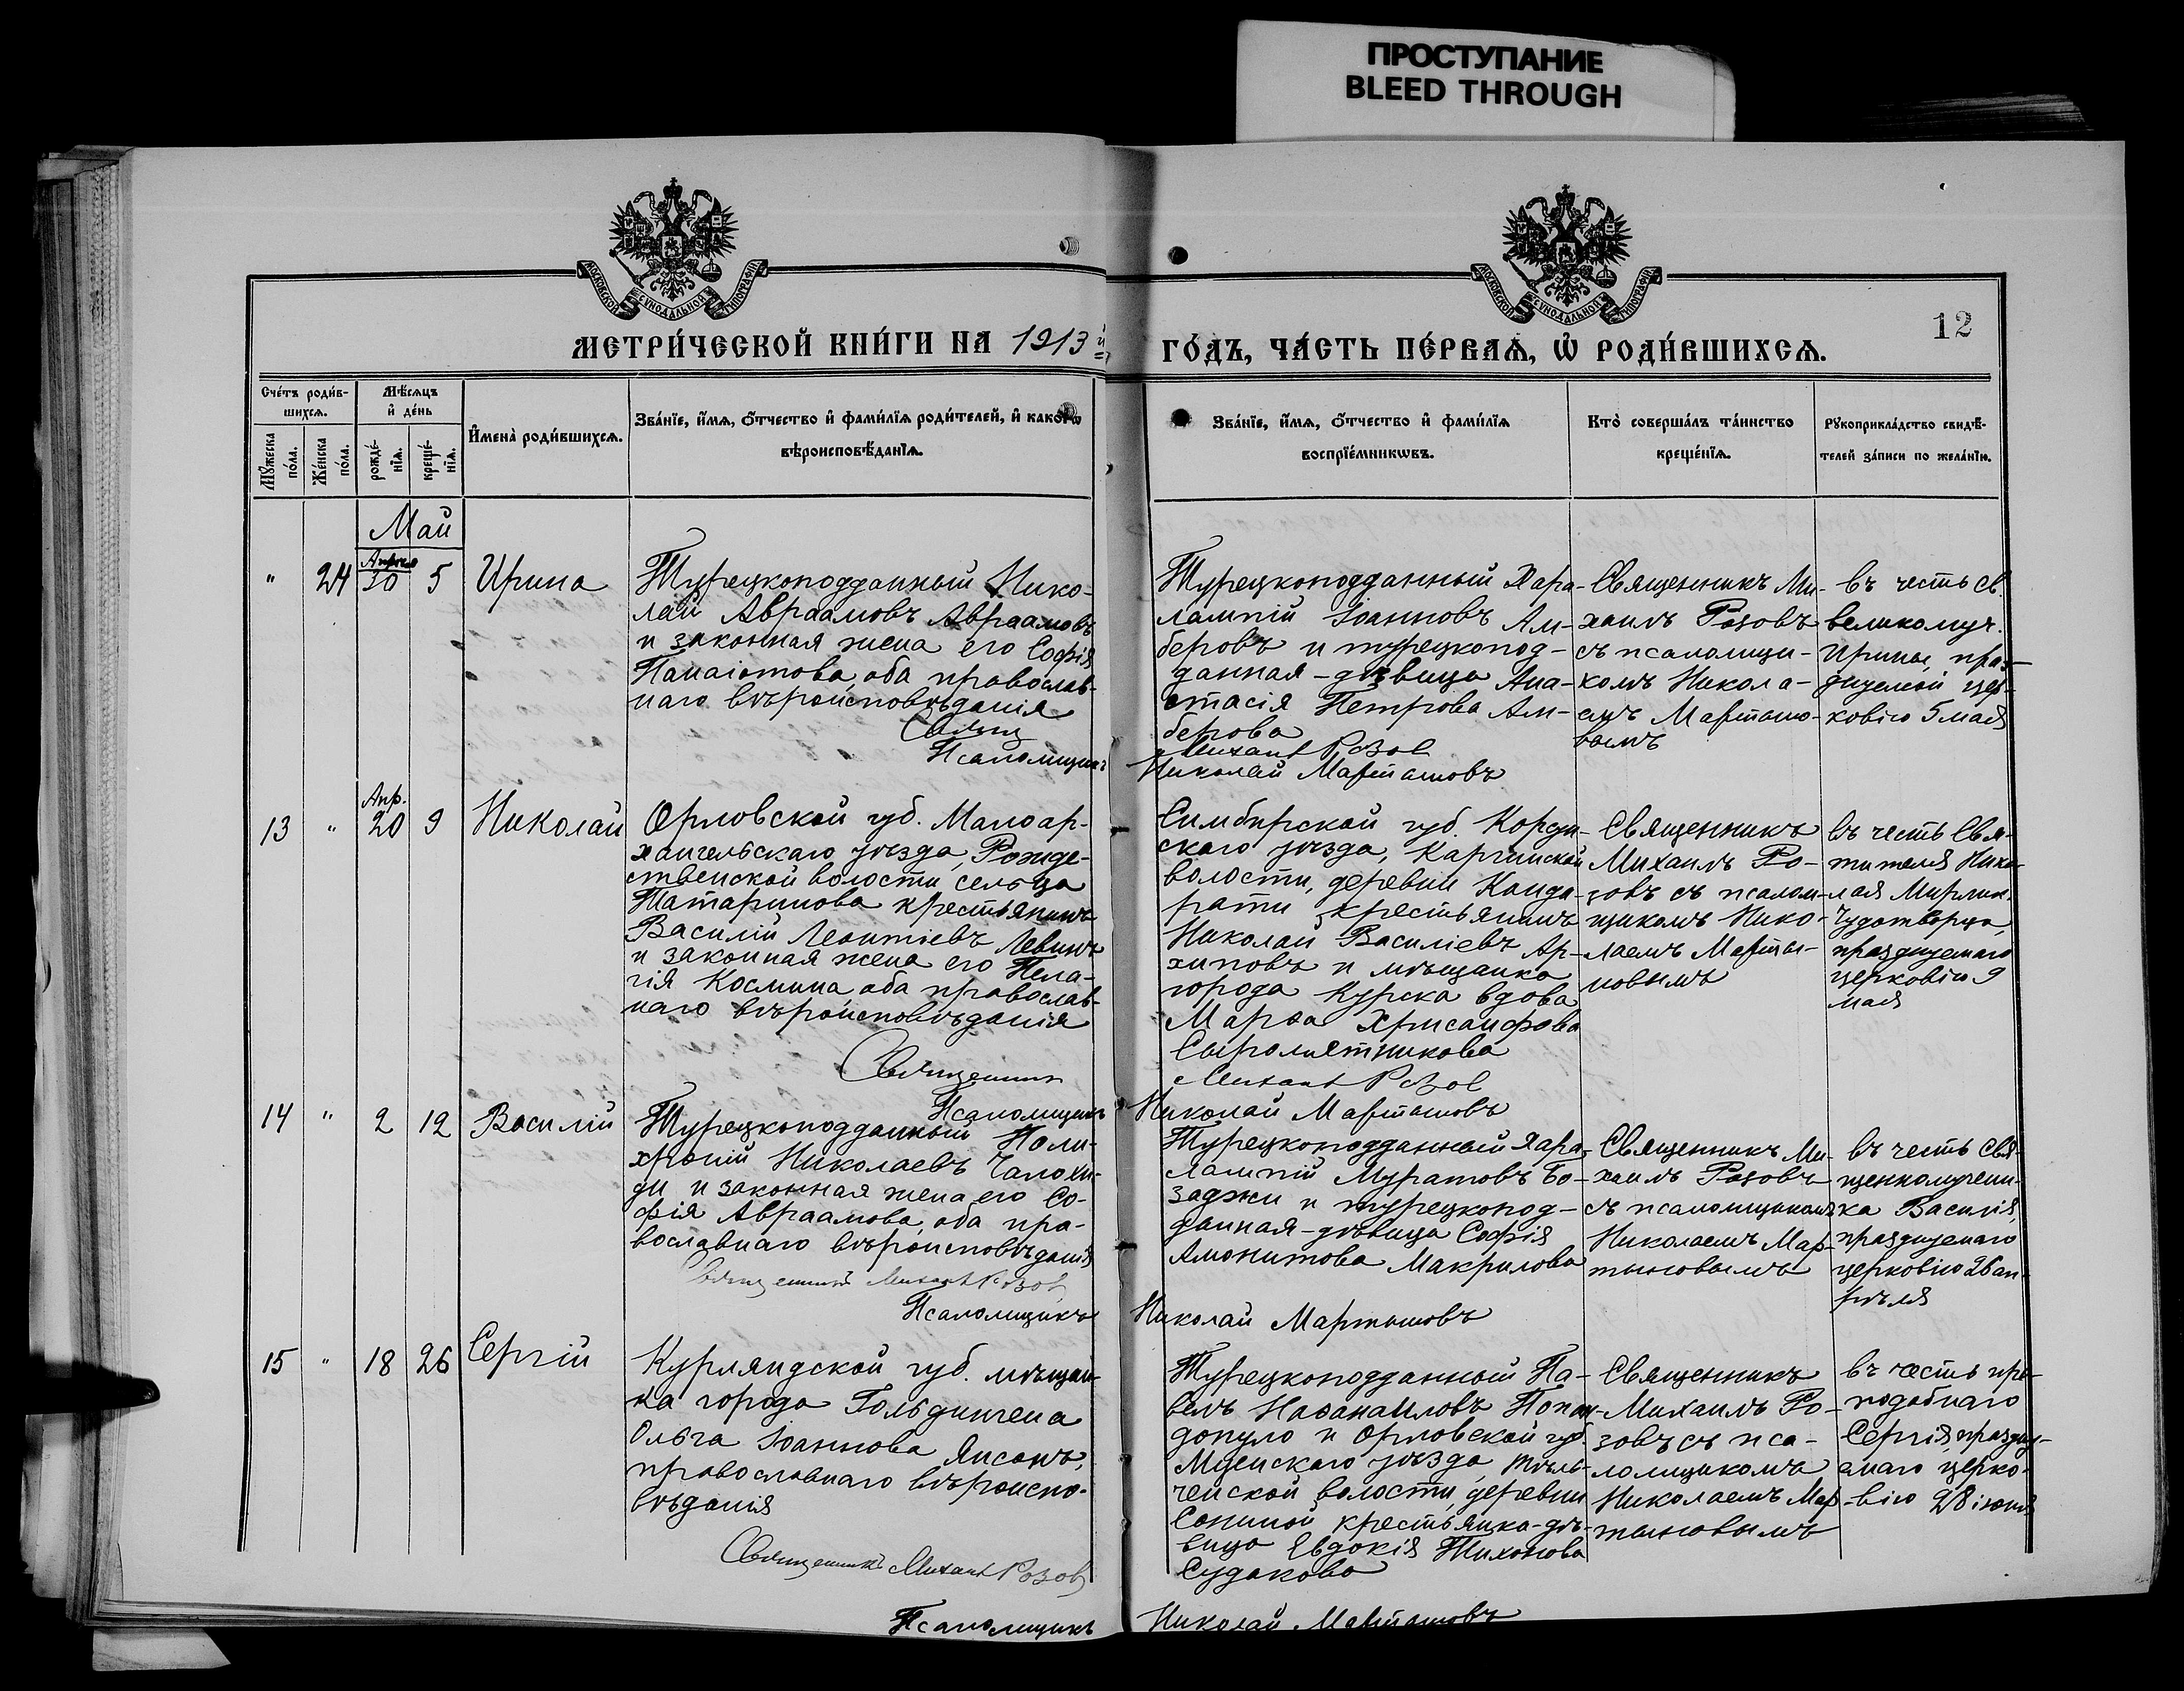 ПРОСТУПАНИЕ
BLEED THROUGH
МОСКОВСКОЙ СѴНОДАЛЬНОЙ ТИПОГРАФІИ
МОСКОВСКОЙ СѴНОДАЛЬНОЙ ТИПОГРАФІИ
12
МЕТРИ́ЧЕСКОЙ КНИ́ГИ НА 1913 й
ГО́ДЪ, ЧА́СТЬ ПЕ́РВАѦ, Ѡ҆ РОДИ́ВШИХСѦ.
Сче́тъ роди́в-
шихсѧ.
Мꙋ́жеска
по́ла.
Же́нска
по́ла.
Мѣ́сѧцъ
и҆ де́нь
рожде́-
нїѧ.
креще́-
нїѧ.
И҆мена̀ роди́вшихсѧ.
Зва́нїе, и҆́мѧ, ѻ҆́тчество и҆ фами́лїѧ роди́телей, и҆ какогѡ
вѣроисповѣ́данїѧ.
Зва́нїе, и҆́мѧ, ѻ҆́тчество и҆ фами́лїѧ
воспрїе́мникѡвъ.
Кто̀ соверша́лъ та́инство
креще́нїѧ.
Рꙋкоприкла́дство свидѣ́-
телей за́писи по жела́нїю.
Май
" 24
Апрель
30 5
Ирина
Турецкоподданный Нико-
лай Авраамовъ Авраамовъ
и законная жена его Софія
Панаіотова, оба православ-
наго вѣроисповѣданія
Свящ
Псаломщикъ
Турецкоподданный Хара-
лампій Іоанновъ Ам-
беровъ и турецкопод-
данная-дѣвица Ана-
стасія Петрова Ам-
берова
Михаил Розов
Николай Мартыновъ
Священникъ Ми-
хаилъ Розовъ
съ псаломщи-
комъ Никола-
емъ Мартыно-
вымъ
въ честь св.
великомуч.
Ирины, праз-
днуемой цер-
ковію 5 мая
13 "
Апр.
20 9
Николай
Орловской губ. Малоар-
хангельскаго уѣзда, Рожде-
ственской волости, сельца
Татаринова крестьянинъ
Василій Леонтіевъ Левинъ
и законная жена его Пела-
гія Космина, оба православ-
наго вѣроисповѣданія
Священник
Псаломщикъ
Симбирской губ. Корсун-
скаго уѣзда, Каргинской
волости, деревни Канда-
рати крестьянинъ
Николай Василіевъ Ар-
хиповъ и мѣщанка
города Курска вдова
Марѳа Хрисанфова
Сыромятникова
Михаил Розов
Николай Мартыновъ
Священникъ
Михаилъ Ро-
зовъ съ псалом-
щикомъ Нико-
лаемъ Марты-
новымъ
въ честь Свя-
тителя Нико-
лая Мирлик.
Чудотворца,
празднуемаго
церковію 9
мая
14 " 2 12
Василій
Турецкоподданный Поли-
хроній Николаевъ Чалохи-
ди и законная жена его Со-
фія Авраамова, оба пра-
вославнаго вѣроисповѣданія
Священникъ Михаил Розов
Псаломщикъ
Турецкоподданный Хара-
лампій Муратовъ Бо-
заджи и турецкопод-
данная-дѣвица Софія
Амонитова Макрилова
Николай Мартыновъ
Священникъ Ми-
хаилъ Розовъ
съ псаломщикомъ
Николаемъ Мар-
тыновымъ
въ честь свя-
щенномучени-
ка Василія,
празднуемаго
церковію 26 ап-
рѣля
15 " 18 26
Сергій
Курляндской губ. мѣщан-
ка города Гольдингена
Ольга Іоаннова Янсонъ,
православнаго вѣроиспо-
вѣданія
Священникъ Михаил Розов
Псаломщикъ
Турецкоподданный Па-
велъ Наѳанаиловъ Попан-
допуло и Орловской губ.
Мценскаго уѣзда, Тѣль-
ченской волости, деревни
крестьянка-дѣ-
вица Евдокія Тихонова
Судакова
Николай Мартыновъ
Священникъ
Михаилъ Ро-
зовъ съ пса-
ломщикомъ
Николаемъ Мар-
тыновымъ
въ честь пре-
подобнаго
Сергія, праздну-
емаго церко-
вію 28 іюня